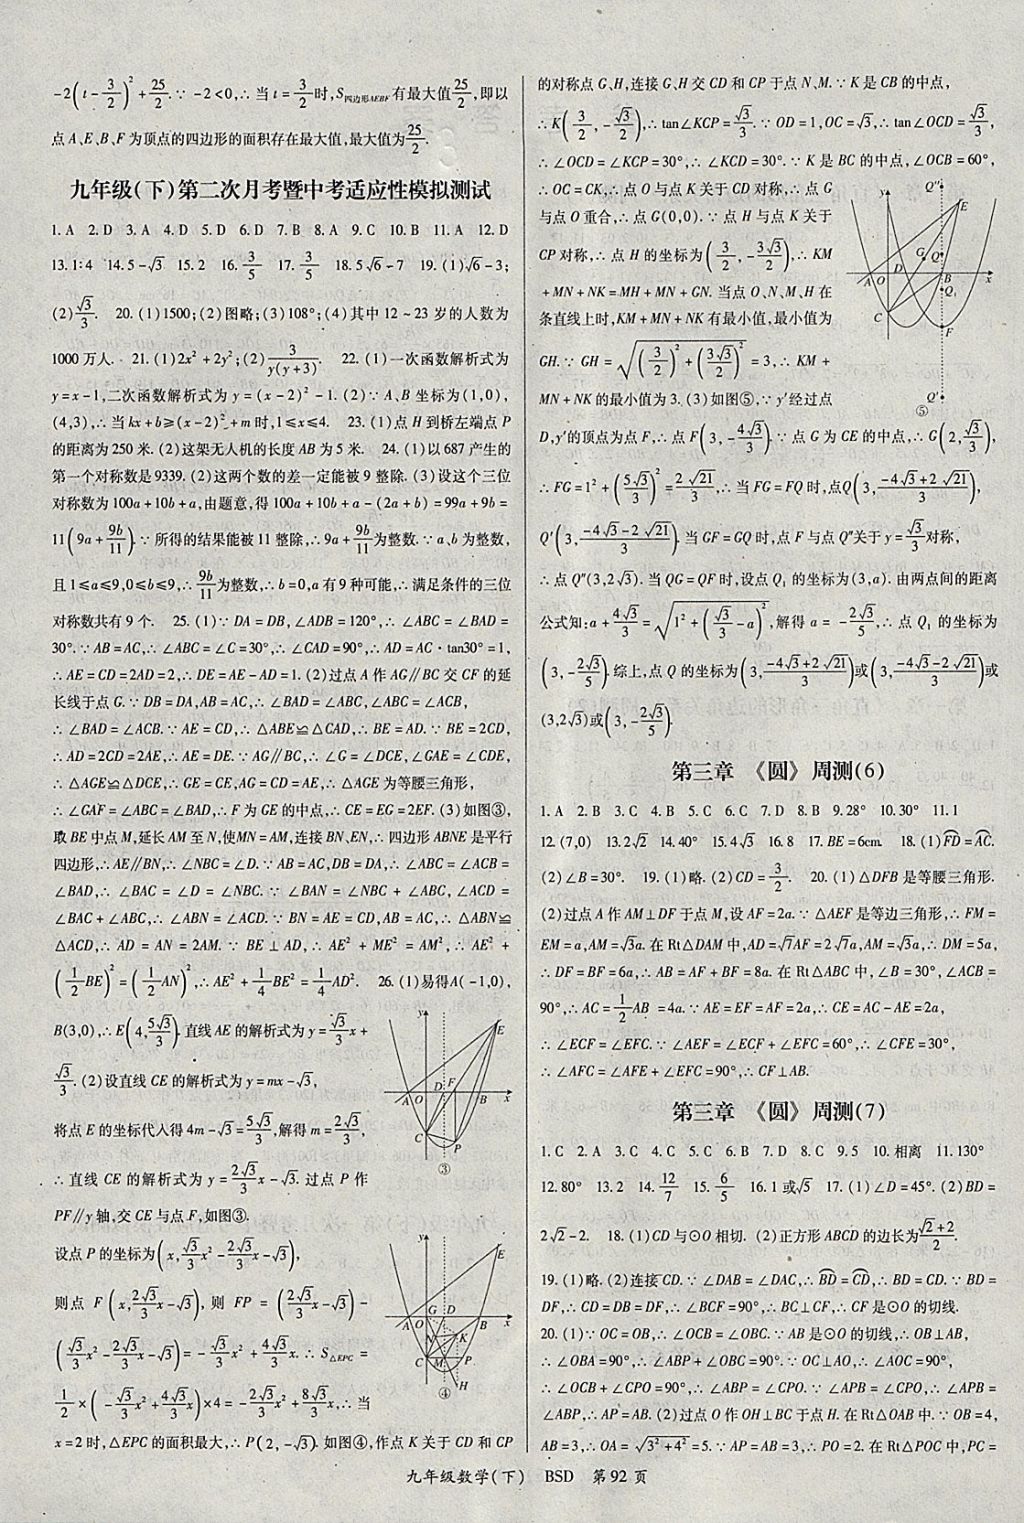 -2(t-3/2)²+25/2.∵ -2<0,∴ 当 t=3/2时,S四边形AEBF有最大值25/2,即以
点 A、E、B、F 为顶点的四边形的面积存在最大值,最大值为25/2.
九年级(下)第二次月考暨中考适应性模拟测试
1. A 2. D 3. A 4. D 5. D 6. D 7. B 8. A 9. C 10. B 11. A 12. D
13. 1∶4 14. 5-√3 15. 2 16. 3/5 17. 3/5 18. 5√6-7 19. (1)√6-3;
(2)√3/3. 20. (1)1500;(2)图略;(3)108°;(4)其中 12~23 岁的人数为
1000 万人. 21. (1)2x²+2y²;(2)3/(y(y+3)). 22. (1)一次函数解析式为
y=x-1,二次函数解析式为 y=(x-2)²-1. (2)∵ A、B 坐标为(1,0),
(4,3),∴ 当 kx+b≥(x-2)²+m 时,1≤x≤4. 23. (1)点 H 到桥左端点 P
的距离为 250 米. (2)这架无人机的长度 AB 为 5 米. 24. (1)以 687 产生的
第一个对称数是 9339. (2)这两个数的差一定能被 9 整除. (3)设这个三位
对称数为 100a+10b+a,由题意,得 100a+10b+a-(2a+b)=99a+9b=
11(9a+9b/11).∵ 所得的结果能被 11 整除,∴ 9a+9b/11为整数.∵ a、b 为整数,
且 1≤a≤9,0≤b≤9,∴ 9b/11为整数,∴ b=0,a 有 9 种可能,∴ 满足条件的三位
对称数共有 9 个. 25. (1)∵ DA=DB,∠ADB=120°,∴ ∠ABC=∠BAD=
30°.∵ AB=AC,∴ ∠ABC=∠C=30°,∴ ∠CAD=90°,∴ AD=AC·tan30°=1,
∴ AE=CD=2AD=2,∴ DE=AE-AD=1. (2)过点 A 作 AG∥BC 交 CF 的延
长线于点 G.∵ DB=DA,AB=AC,∴ ∠BAD=∠ABC,∠ABC=∠ACB,
∴ ∠BAD=∠ACB.∵ AB=AC,∴ △ABE≌△CAD,∴ BE=AD.∵ BE=2CD,
∴ AD=2CD=2AE,∴ AE=DE.∵ AG∥BC,∴ ∠G=∠DCE,∠GAE=∠CDE,
∴ △AGE≌△DCE,∴ GE=CE,AG=CD=AE,∴ △AGE 为等腰三角形,
∴ ∠GAF=∠ABC=∠BAD,∴ F 为 GE 的中点,∴ CE=EG=2EF. (3)如图③,
取 BE 中点 M,延长 AM 至 N,使 MN=AM,连接 BN、EN,∴ 四边形 ABNE 是平行
四边形,∴ AE∥BN,∴ ∠NBC=∠D.∵ AB=AC,DB=DA,∴ ∠ABC=∠ACB=
∠BAD,∴ ∠BAC=∠D=∠NBC.∵ ∠BAN=∠NBC+∠ABC,∠ACD=
∠BAC+∠ABC,∴ ∠ABN=∠ACD.∵ BN=AE=CD,AB=AC,∴ △ABN≌
△ACD,∴ AD=AN=2AM.∵ BE⊥AD,∴ AE²+ME²=AM²,∴ AE²+
(1/2BE)²=(1/2AN)²,∴ AE²+1/4BE²=1/4AD². 26. (1)易得A(-1,0),
B(3,0),∴ E(4,5√3/3).直线 AE 的解析式为 y=√3/3x+
√3/3. (2)设直线 CE 的解析式为 y=mx-√3,
将点 E 的坐标代入得 4m-√3=5√3/3,解得 m=2√3/3,
∴ 直线 CE 的解析式为 y=2√3/3x-√3. 过点 P 作
PF∥y 轴,交 CE 与点 F,如图③.
y E A O D F B x C P ③
设点 P 的坐标为(x,√3/3x²-2√3/3x-√3),
则点 F(x,2√3/3x-√3),则 FP=(2√3/3x-√3)-
(√3/3x²-2√3/3x-√3)=-√3/3x²+4√3/3x.∴ S△EPC=
1/2×(-√3/3x²+4√3/3x)×4=-2√3/3x²+8√3/3x,∴ 当
y E G D A O B x N K C M P H ④
x=2 时,△EPC 的面积最大,∴ P(2,-√3). 如图④,作点 K 关于 CD 和 CP
的对称点 G、H,连接 G、H 交 CD 和 CP 于点 N、M.∵ K 是 CB 的中点,
∴ K(3/2,-√3/2),∴ tan∠KCP=√3/3.∵ OD=1,OC=√3,∴ tan∠OCD=√3/3,
∴ ∠OCD=∠KCP=30°,∴ ∠KCD=30°.∵ K 是 BC 的中点,∠OCB=60°,
∴ OC=CK,∴ 点 O 与点 K 关于 CD 对称,∴ 点 G
与点 O 重合,∴ 点 G(0,0).∵ 点 H 与点 K 关于
CP 对称,∴ 点 H 的坐标为(3/2,-3√3/2),∴ KM
+MN+NK=MH+MN+GN. 当点 O、N、M、H 在
条直线上时,KM+MN+NK 有最小值,最小值为
GH.∵ GH=√((3/2)²+(3√3/2)²)=3,∴ KM+
MN+NK 的最小值为 3. (3)如图⑤,∵ y′经过点
y Q″ E G Q A O D B x Q₁ C F Q′ ⑤
D,y′的顶点为点 F,∴ 点 F(3,-4√3/3).∵ 点 G 为 CE 的中点,∴ G(2,√3/3),
∴ FG=1²+(5√3/3)²=2√21/3,∴ 当 FG=FQ 时,点Q(3,(-4√3+2√21)/3),
Q′(3,(-4√3-2√21)/3). 当 GF=GQ 时,点 F 与点 Q″关于 y=√3/3对称,
∴ 点 Q″(3,2√3). 当 QG=QF 时,设点 Q₁ 的坐标为(3,a). 由两点间的距离
公式知:a+4√3/3=√(1²+(√3/3-a)²),解得 a=-2√3/5,∴ 点 Q₁ 的坐标为
(3,-2√3/5).综上,点 Q 的坐标为(3,(-4√3+2√21)/3)或(3,(-4√3-2√21)/3)或
(3,2√3)或(3,-2√3/5).
第三章 《圆》周测(6)
1. A 2. B 3. C 4. B 5. C 6. C 7. D 8. B 9. 28° 10. 30° 11. 1
12. (7,0) 13. 2√2 14. 40° 15. 4√3 16. 8 17. BE=6cm. 18. (1)F͡D=A͡C.
(2)∠B=30°. 19. (1)略. (2)CD=3/2. 20. (1)△DFB 是等腰三角形.
(2)过点 A 作 AM⊥DF 于点 M,设 AF=2a.∵ △AEF 是等边三角形,∴ FM=
EM=a,AM=√3a. 在 Rt△DAM 中,AD=√7AF=2√7a,AM=√3a,∴ DM=5a,
∴ DF=BF=6a,∴ AB=AF+BF=8a. 在 Rt△ABC 中,∠B=30°,∠ACB=
90°,∴ AC=1/2AB=4a.∵ AE=EF=AF=2a,∴ CE=AC-AE=2a,
∴ ∠ECF=∠EFC.∵ ∠AEF=∠ECF+∠EFC=60°,∴ ∠CFE=30°,
∴ ∠AFC=∠AFE+∠EFC=90°,∴ CF⊥AB.
第三章 《圆》周测(7)
1. C 2. A 3. C 4. C 5. C 6. B 7. D 8. C 9. 5 10. 相离 11. 130°
12. 80° 13. 2 14. 12/7 15. 6/5 16. 1 或√5 17. (1)∠D=45°. (2)BD=
2√2-2. 18. (1)CD 与⊙O 相切. (2)正方形 ABCD 的边长为(√2+2)/2.
19. (1)略. (2)连接 CD.∵ ∠DAB=∠DAC,∴ B͡D=C͡D,∴ BD=CD.∵ BD=
DF,∴ CD=DB=DF,∴ ∠BCF=90°,∴ BC⊥CF,∴ CF 是⊙O 的切线.
20. (1)∵ OC=OB,∴ ∠OCB=∠OBC.∵ AB 是⊙O 的切线,∴ OB⊥AB,
∴ ∠OBA=90°,∴ ∠ABP+∠OBC=90°.∵ OC⊥AO,∴ ∠AOC=90°,
∴ ∠OCB+∠CPO=90°,∴ ∠ABP=∠CPO.∵ ∠APB=∠CPO,∴ ∠APB=
∠ABP,∴ AP=AB. (2)过点 O 作 OH⊥BC 于点 H. 在 Rt△OAB 中.∵ OB=4,
AB=3,∴ OA=√(3²+4²)=5.∵ AP=AB=3,∴ PO=2. 在 Rt△POC 中,PC=
九年级数学(下) BSD 第 92 页